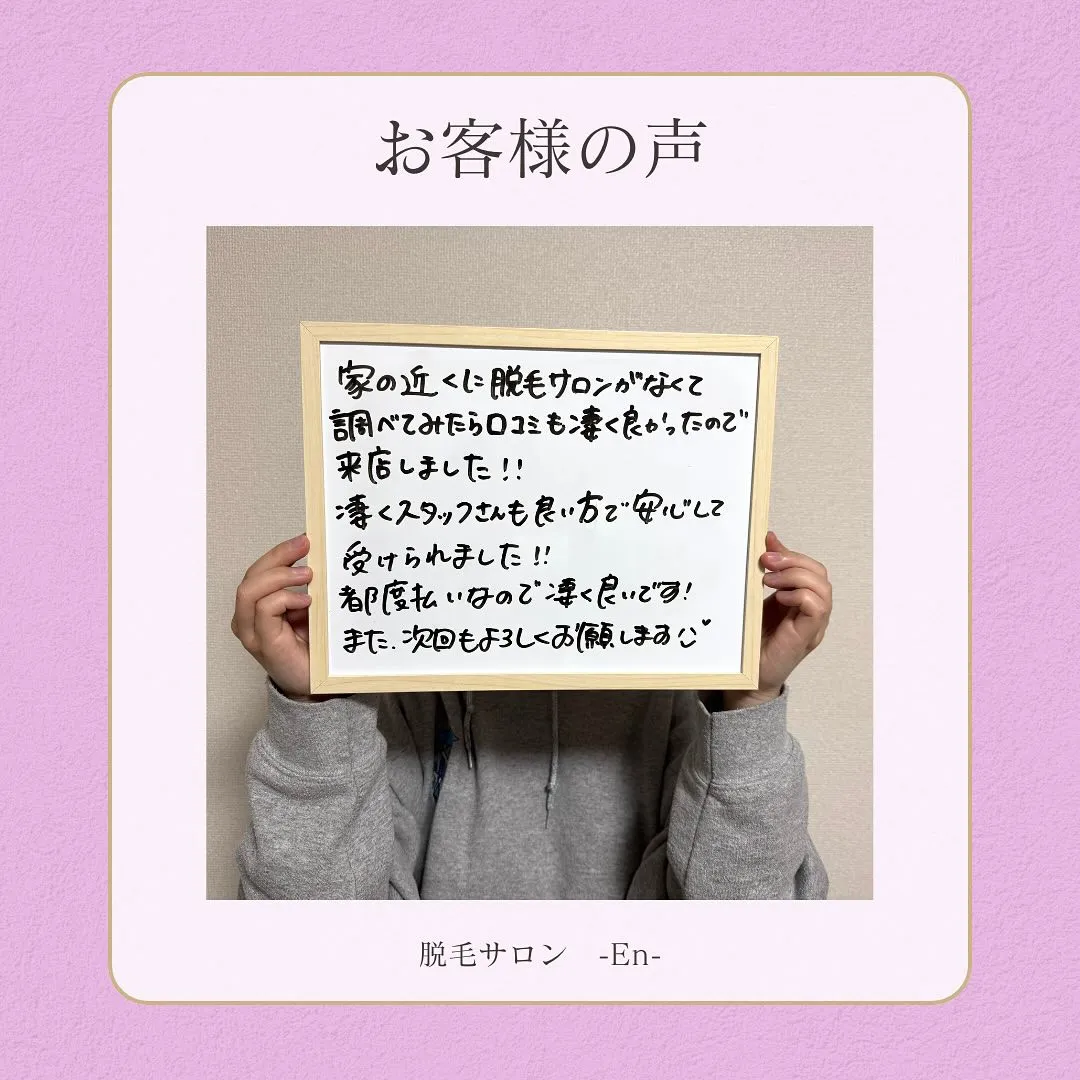 お客様の声
家の近くに脱毛サロンがなくて
調べてみたら口コミも凄く良かったので
来店しました!!
凄くスタッフさんも良い方で安心して
受けられました!!
都度払いなので凄く良いです!
また、次回もよろしくお願します
脱毛サロン -En-